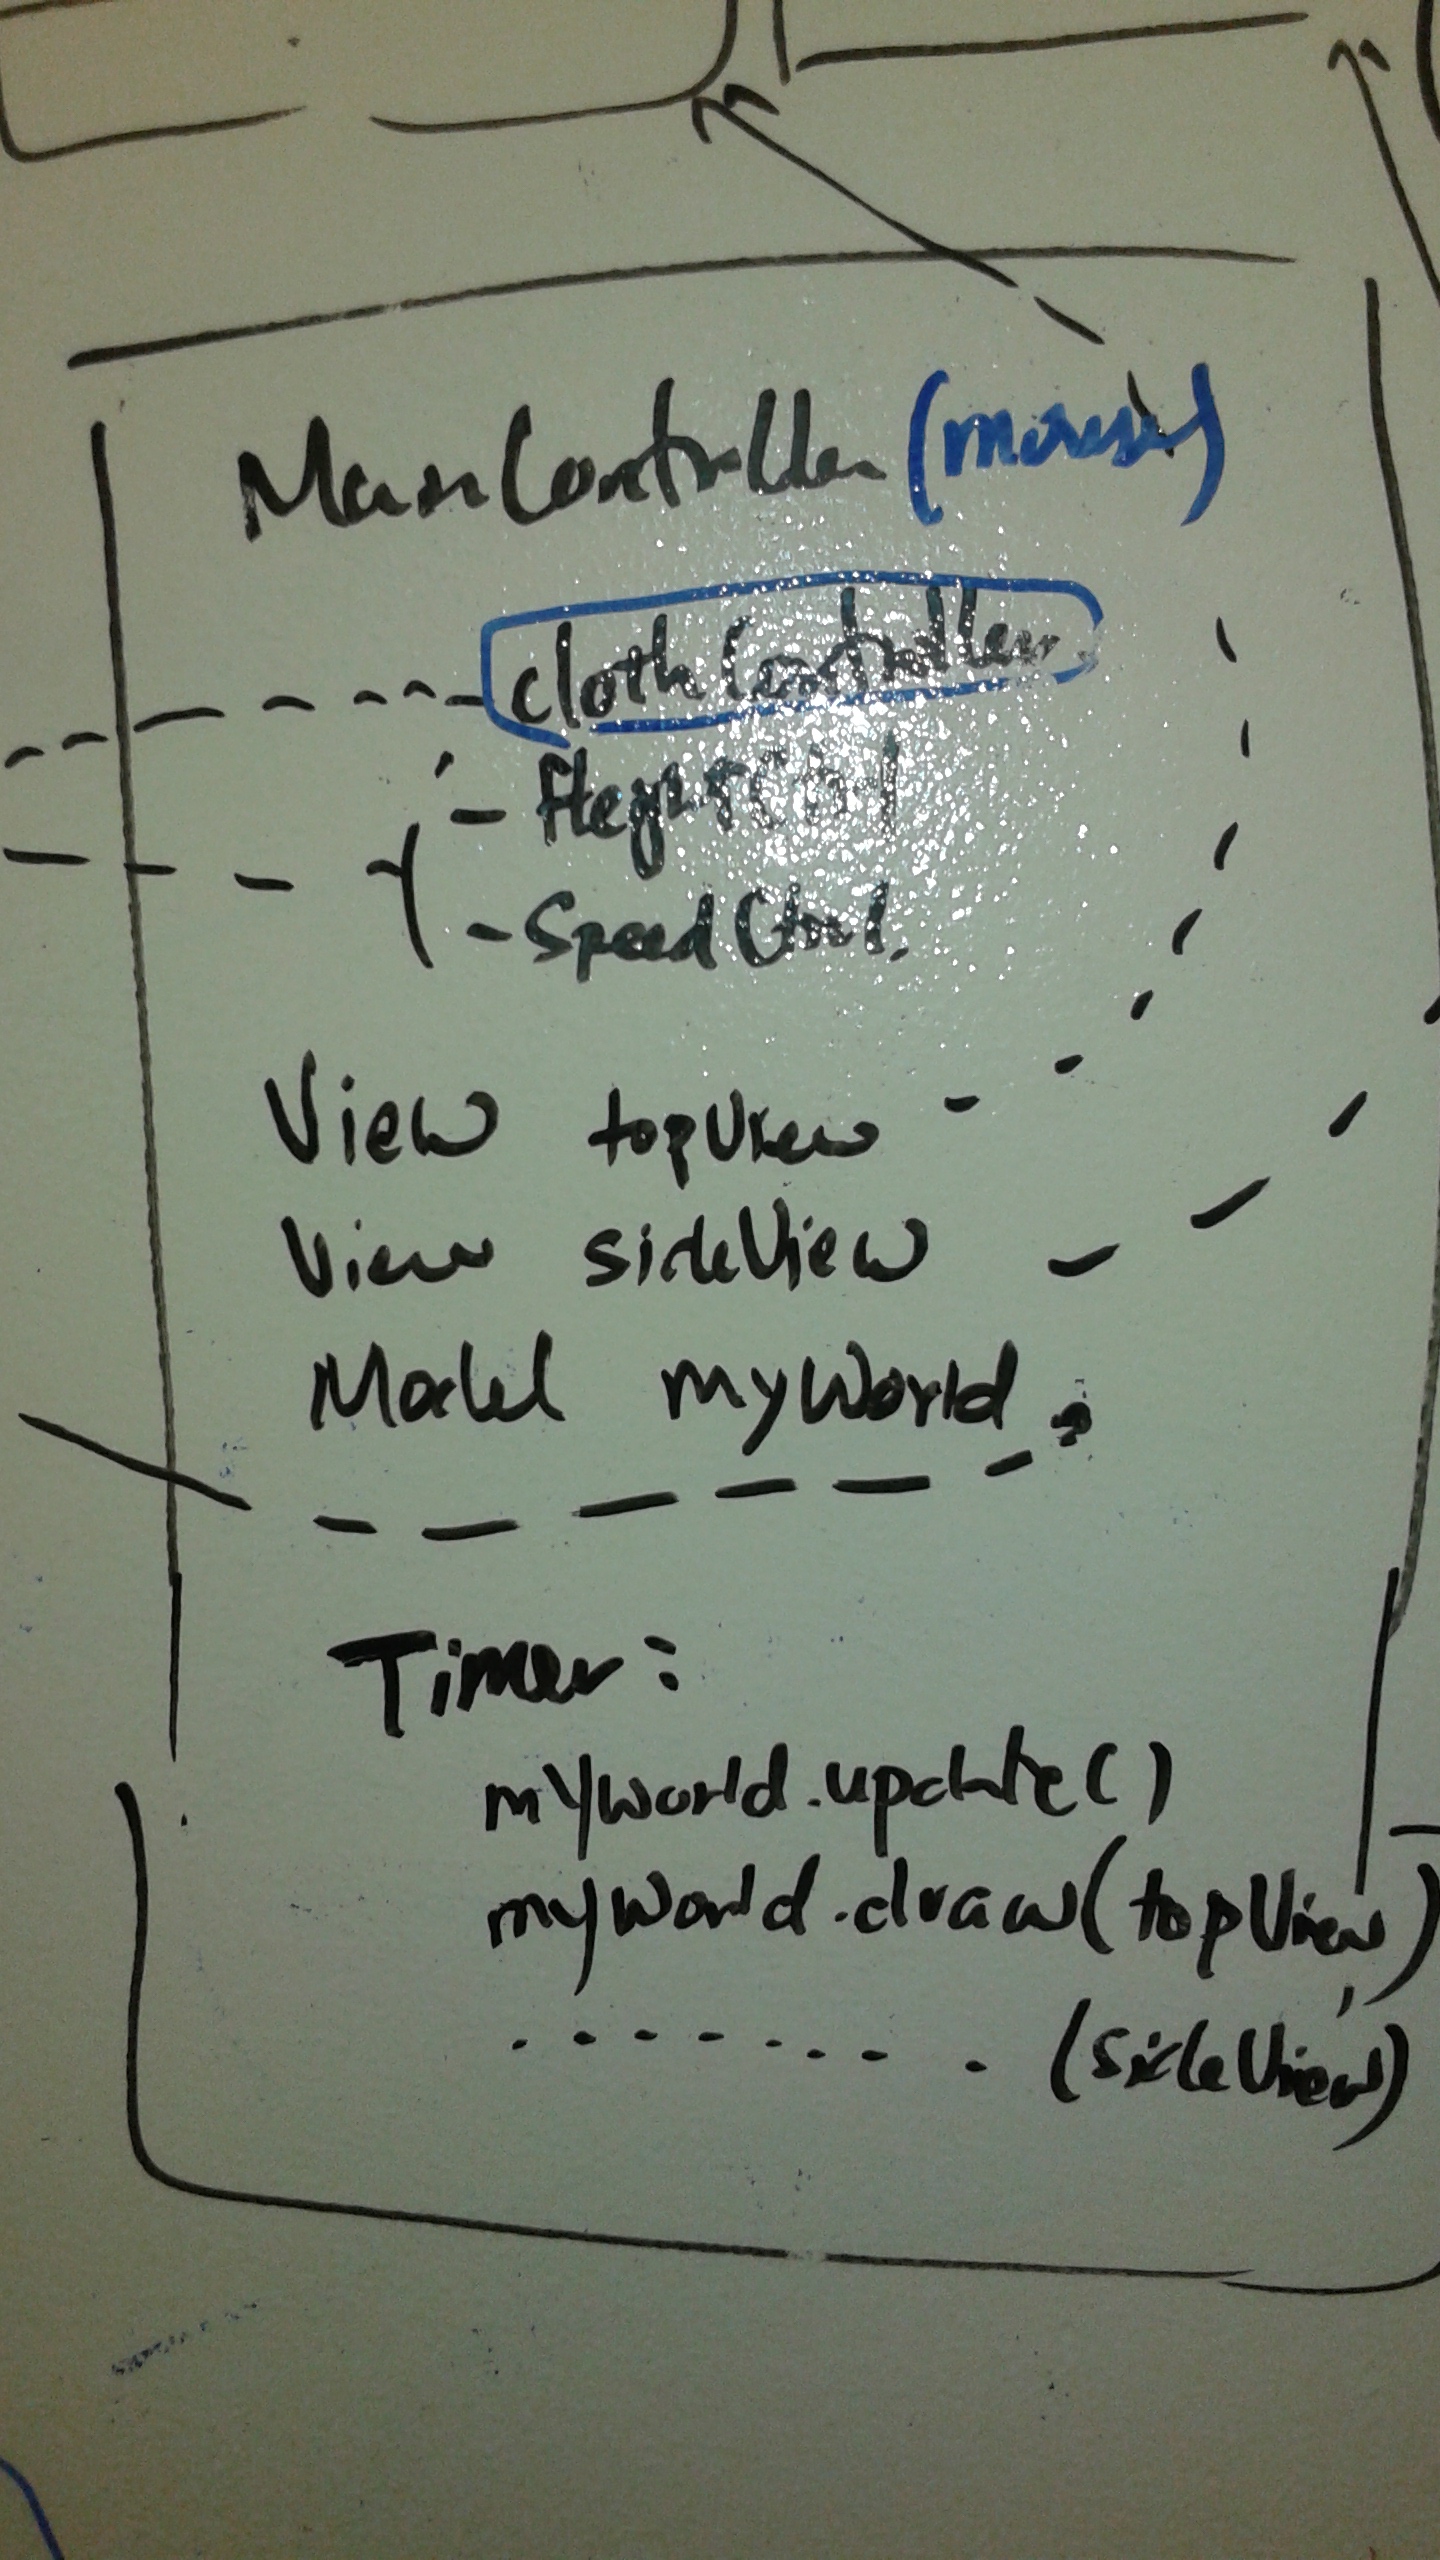 MainController (mouse)
clothController
- HeightCtrl
- Speed Ctrl.
View topView
View sideView
Model myWorld
Timer:
myWorld.update()
myWorld.draw(topView)
. . . . . . . . (sideView)